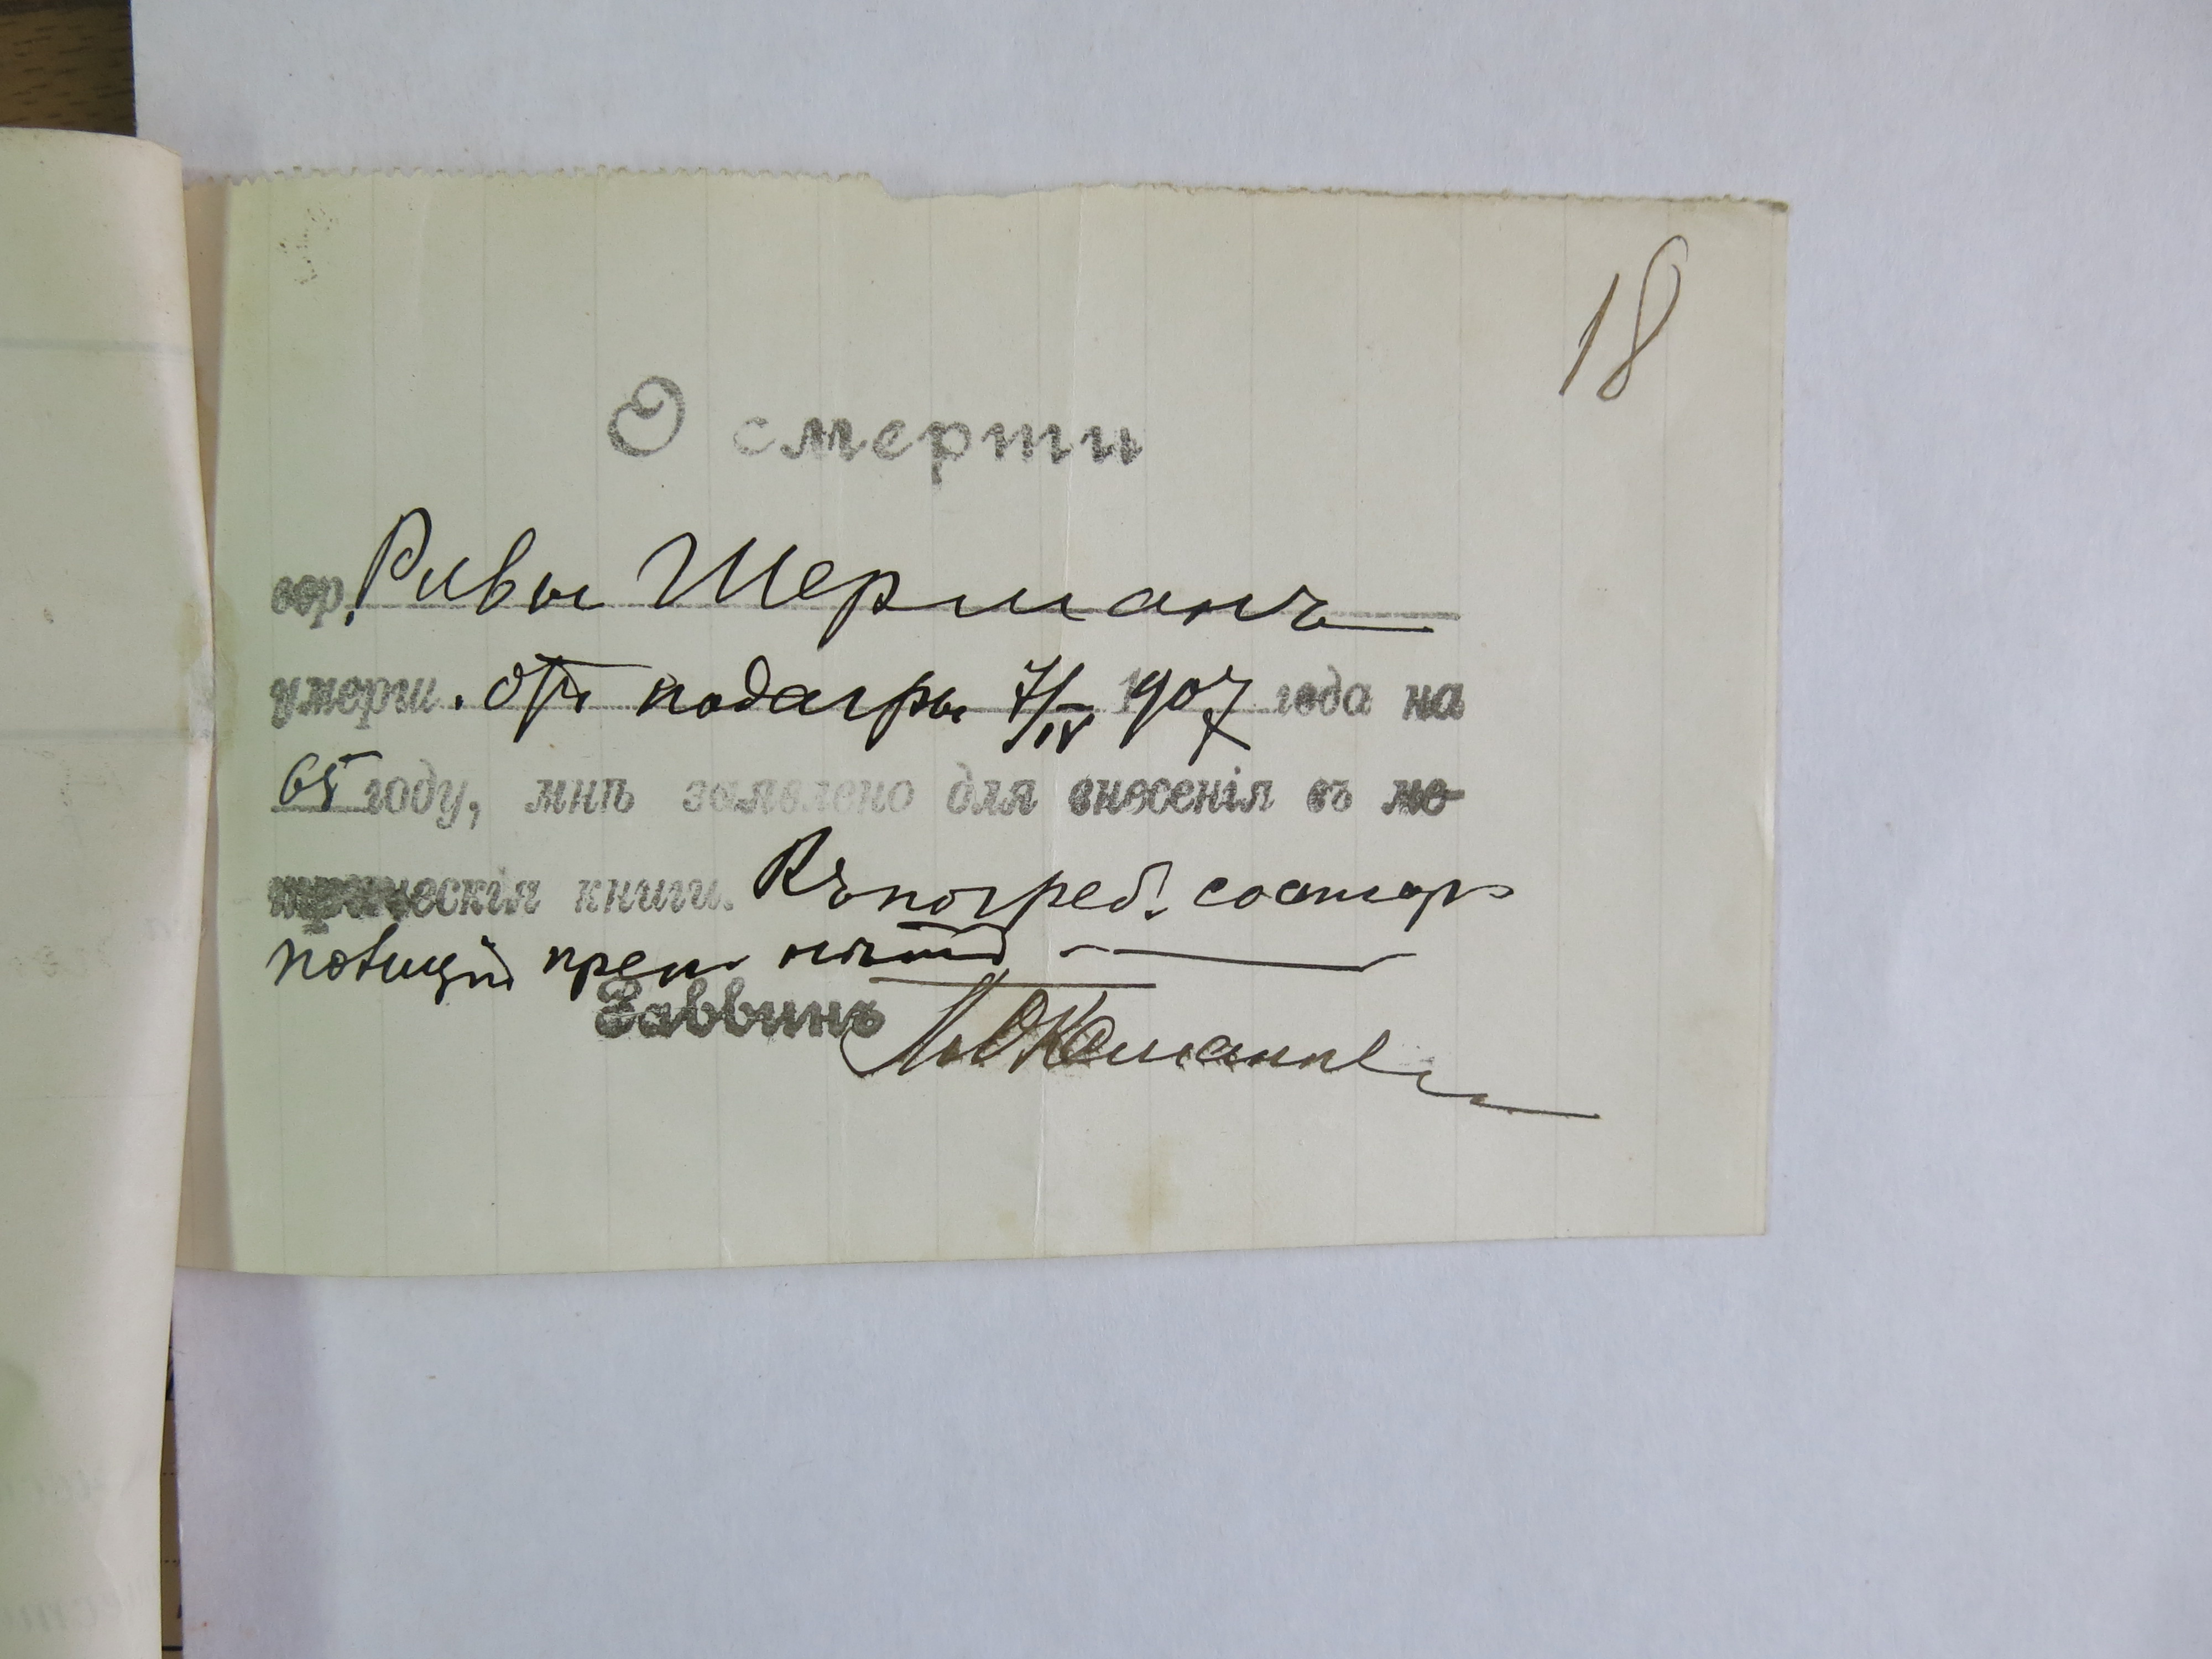 18
О смерти
евр. Ривы Шерманъ
умерш. отъ подагры 7/IV 1907 года на
65 году, мнѣ заявлено для внесенія въ ме-
трическія книги. Къ погреб. со стор.
полиціи преп. нѣтъ
Раввинъ